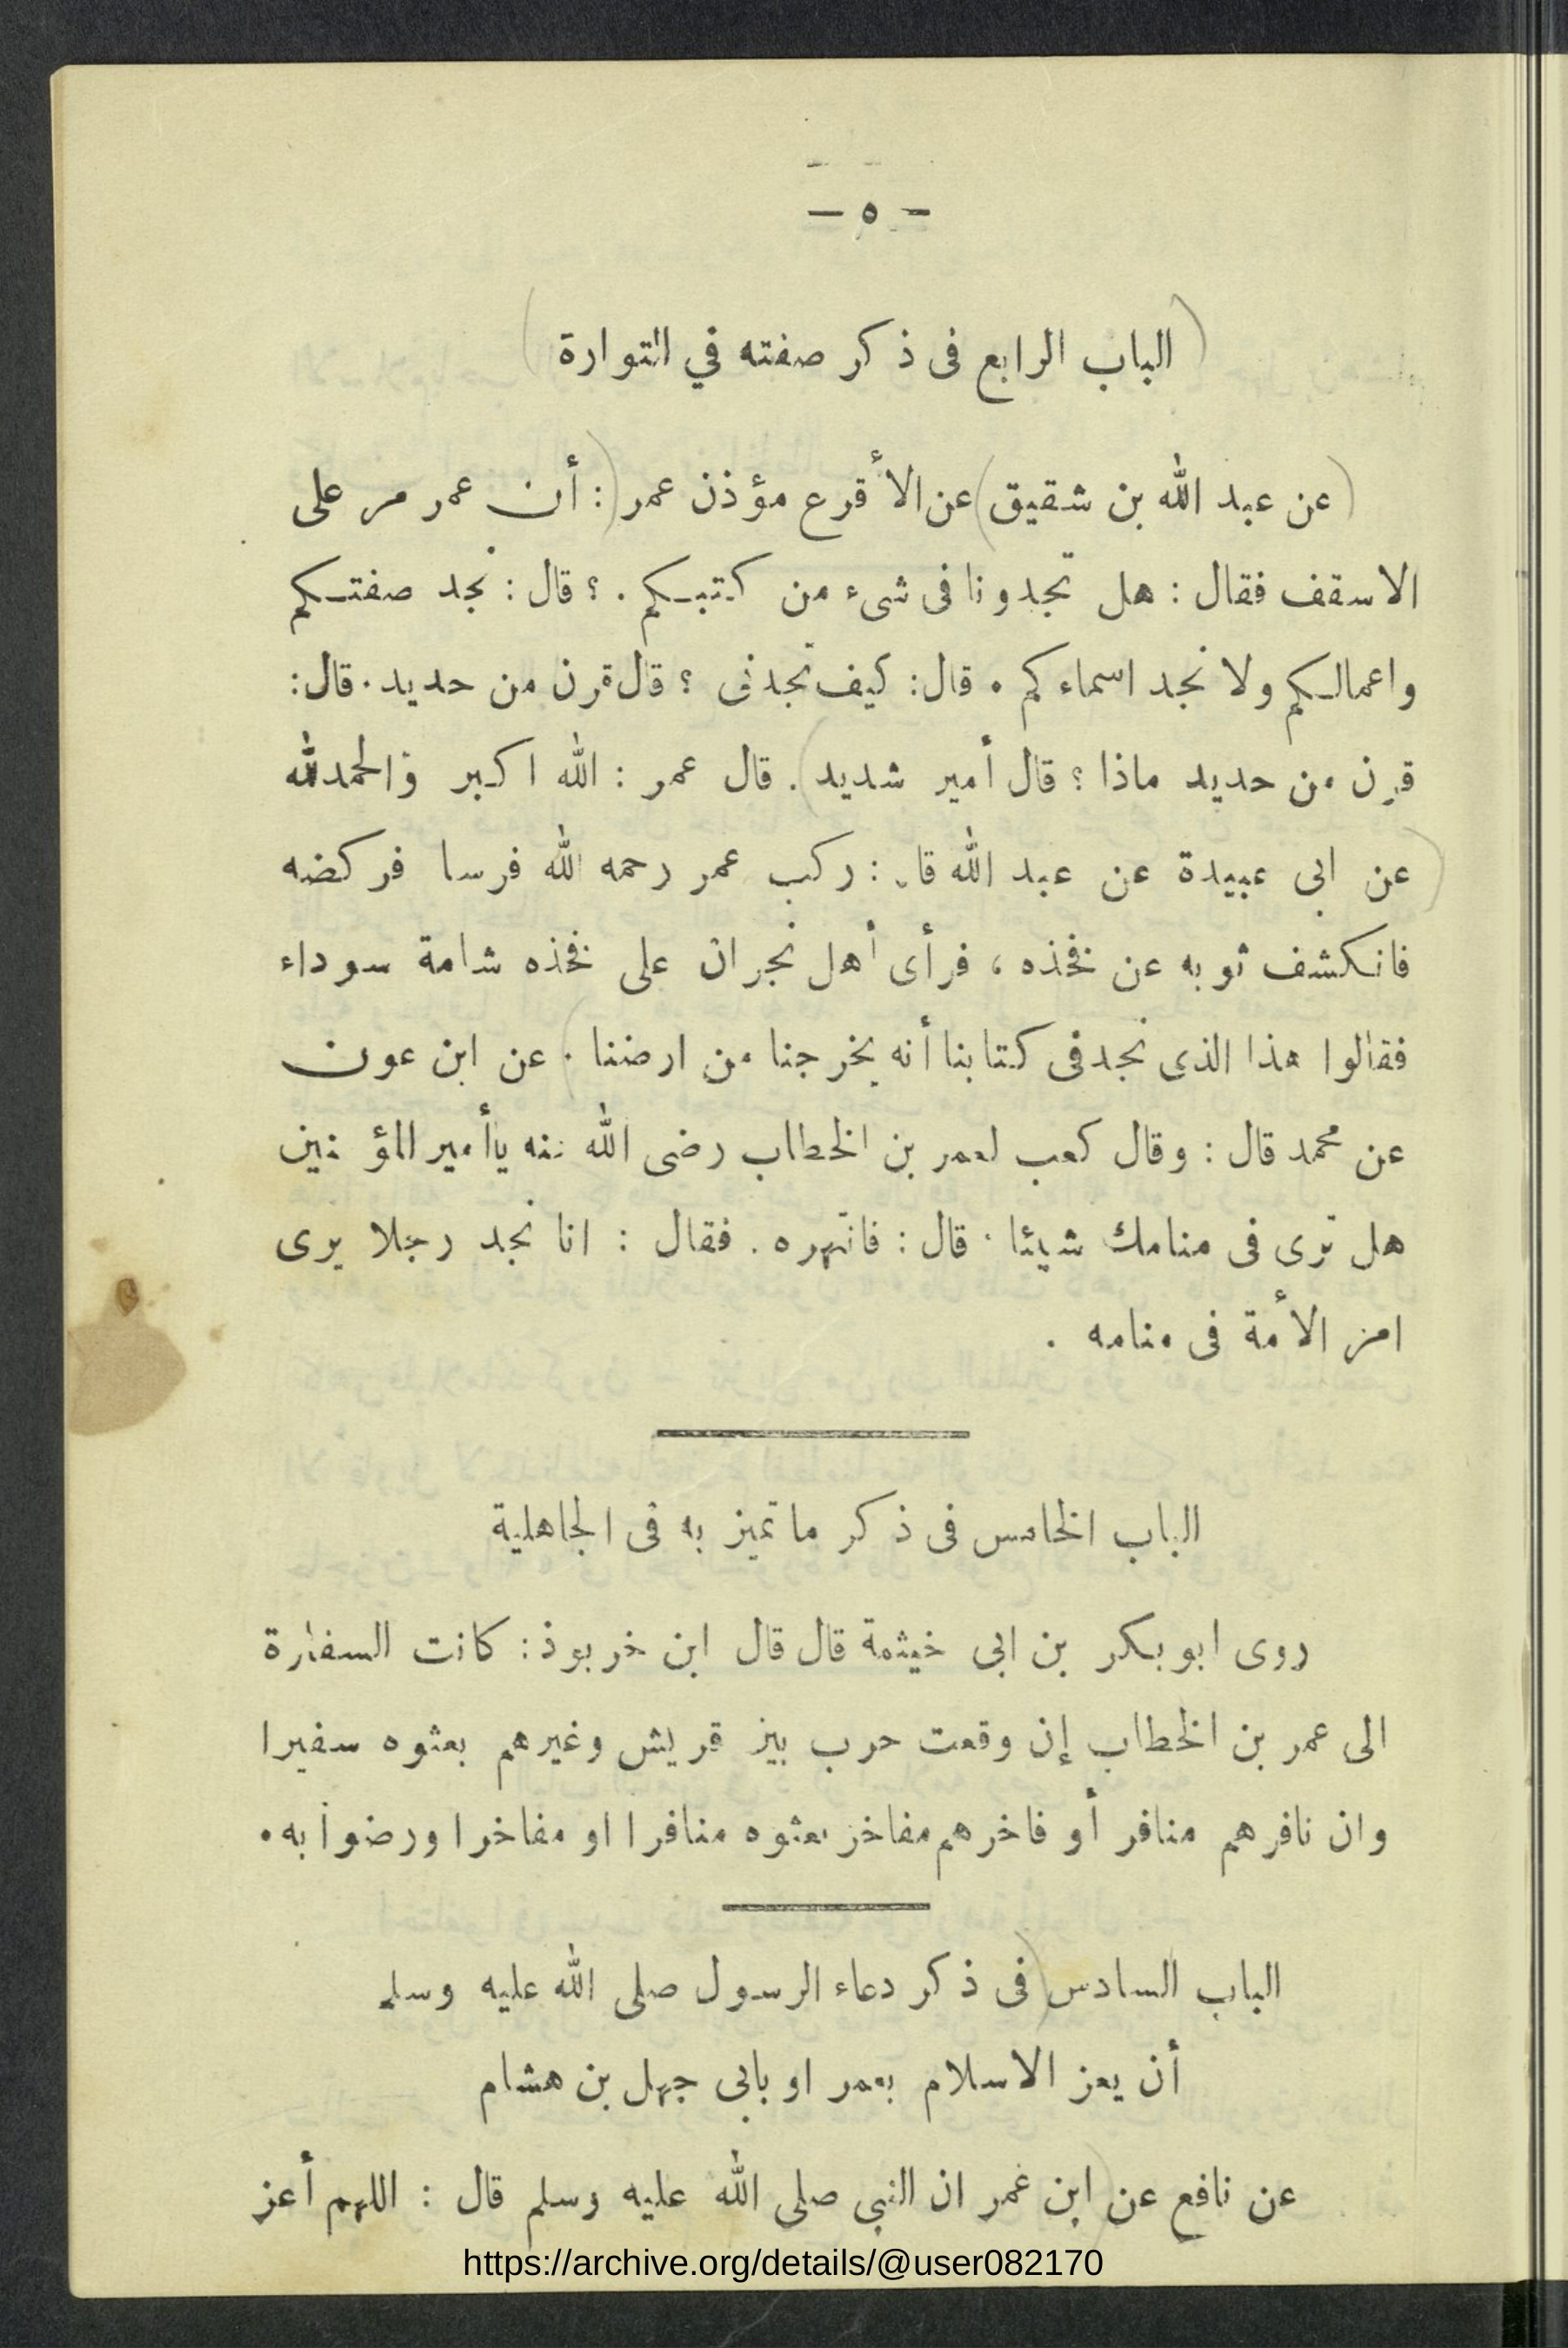 — ٥ —
الباب الرابع فى ذكر صفته في التوارة
(عن عبد الله بن شقيق) عن الأقرع مؤذن عمر): أن عمر مر على
الاسقف فقال : هل تجدونا فى شىء من كتبكم . ؟ قال : نجد صفتكم
واعمالكم ولا نجد اسماءكم . قال : كيف تجدنى ؟ قال قرن من حديد . قال :
قرن من حديد ماذا ؟ قال أمير شديد) . قال عمر : الله اكبر والحمدلله
(عن ابى عبيدة عن عبد الله قا. : ركب عمر رحمه الله فرسا فركضه
فانكشف ثوبه عن فخذه ، فرأى أهل نجران على فخذه شامة سوداء
فقالوا هذا الذى نجدفى كتابنا أنه يخرجنا من ارضنا) . عن ابن عون
عن محمد قال : وقال كعب لعمر بن الخطاب رضى الله عنه ياأمير المؤمنين
هل ترى فى منامك شيئا . قال : فانتهره . فقال : انا نجد رجلا يرى
امر الأمة فى منامه .
الباب الخامس فى ذكر ما تميز به فى الجاهلية
روى ابو بكر بن ابى خيثمة قال قال ابن خربوذ : كانت السفارة
الى عمر بن الخطاب إن وقعت حرب بين قريش وغيرهم بعثوه سفيرا
وان نافرهم منافر أو فاخرهم مفاخر بعثوه منافرا او مفاخرا ورضوا به .
الباب السادس (فى ذكر دعاء الرسول صلى الله عليه وسلم
أن يعز الاسلام بعمر او بابى جهل بن هشام
عن نافع عن (ابن عمر ان النبي صلى الله عليه وسلم قال : اللهم أعز
https://archive.org/details/@user082170